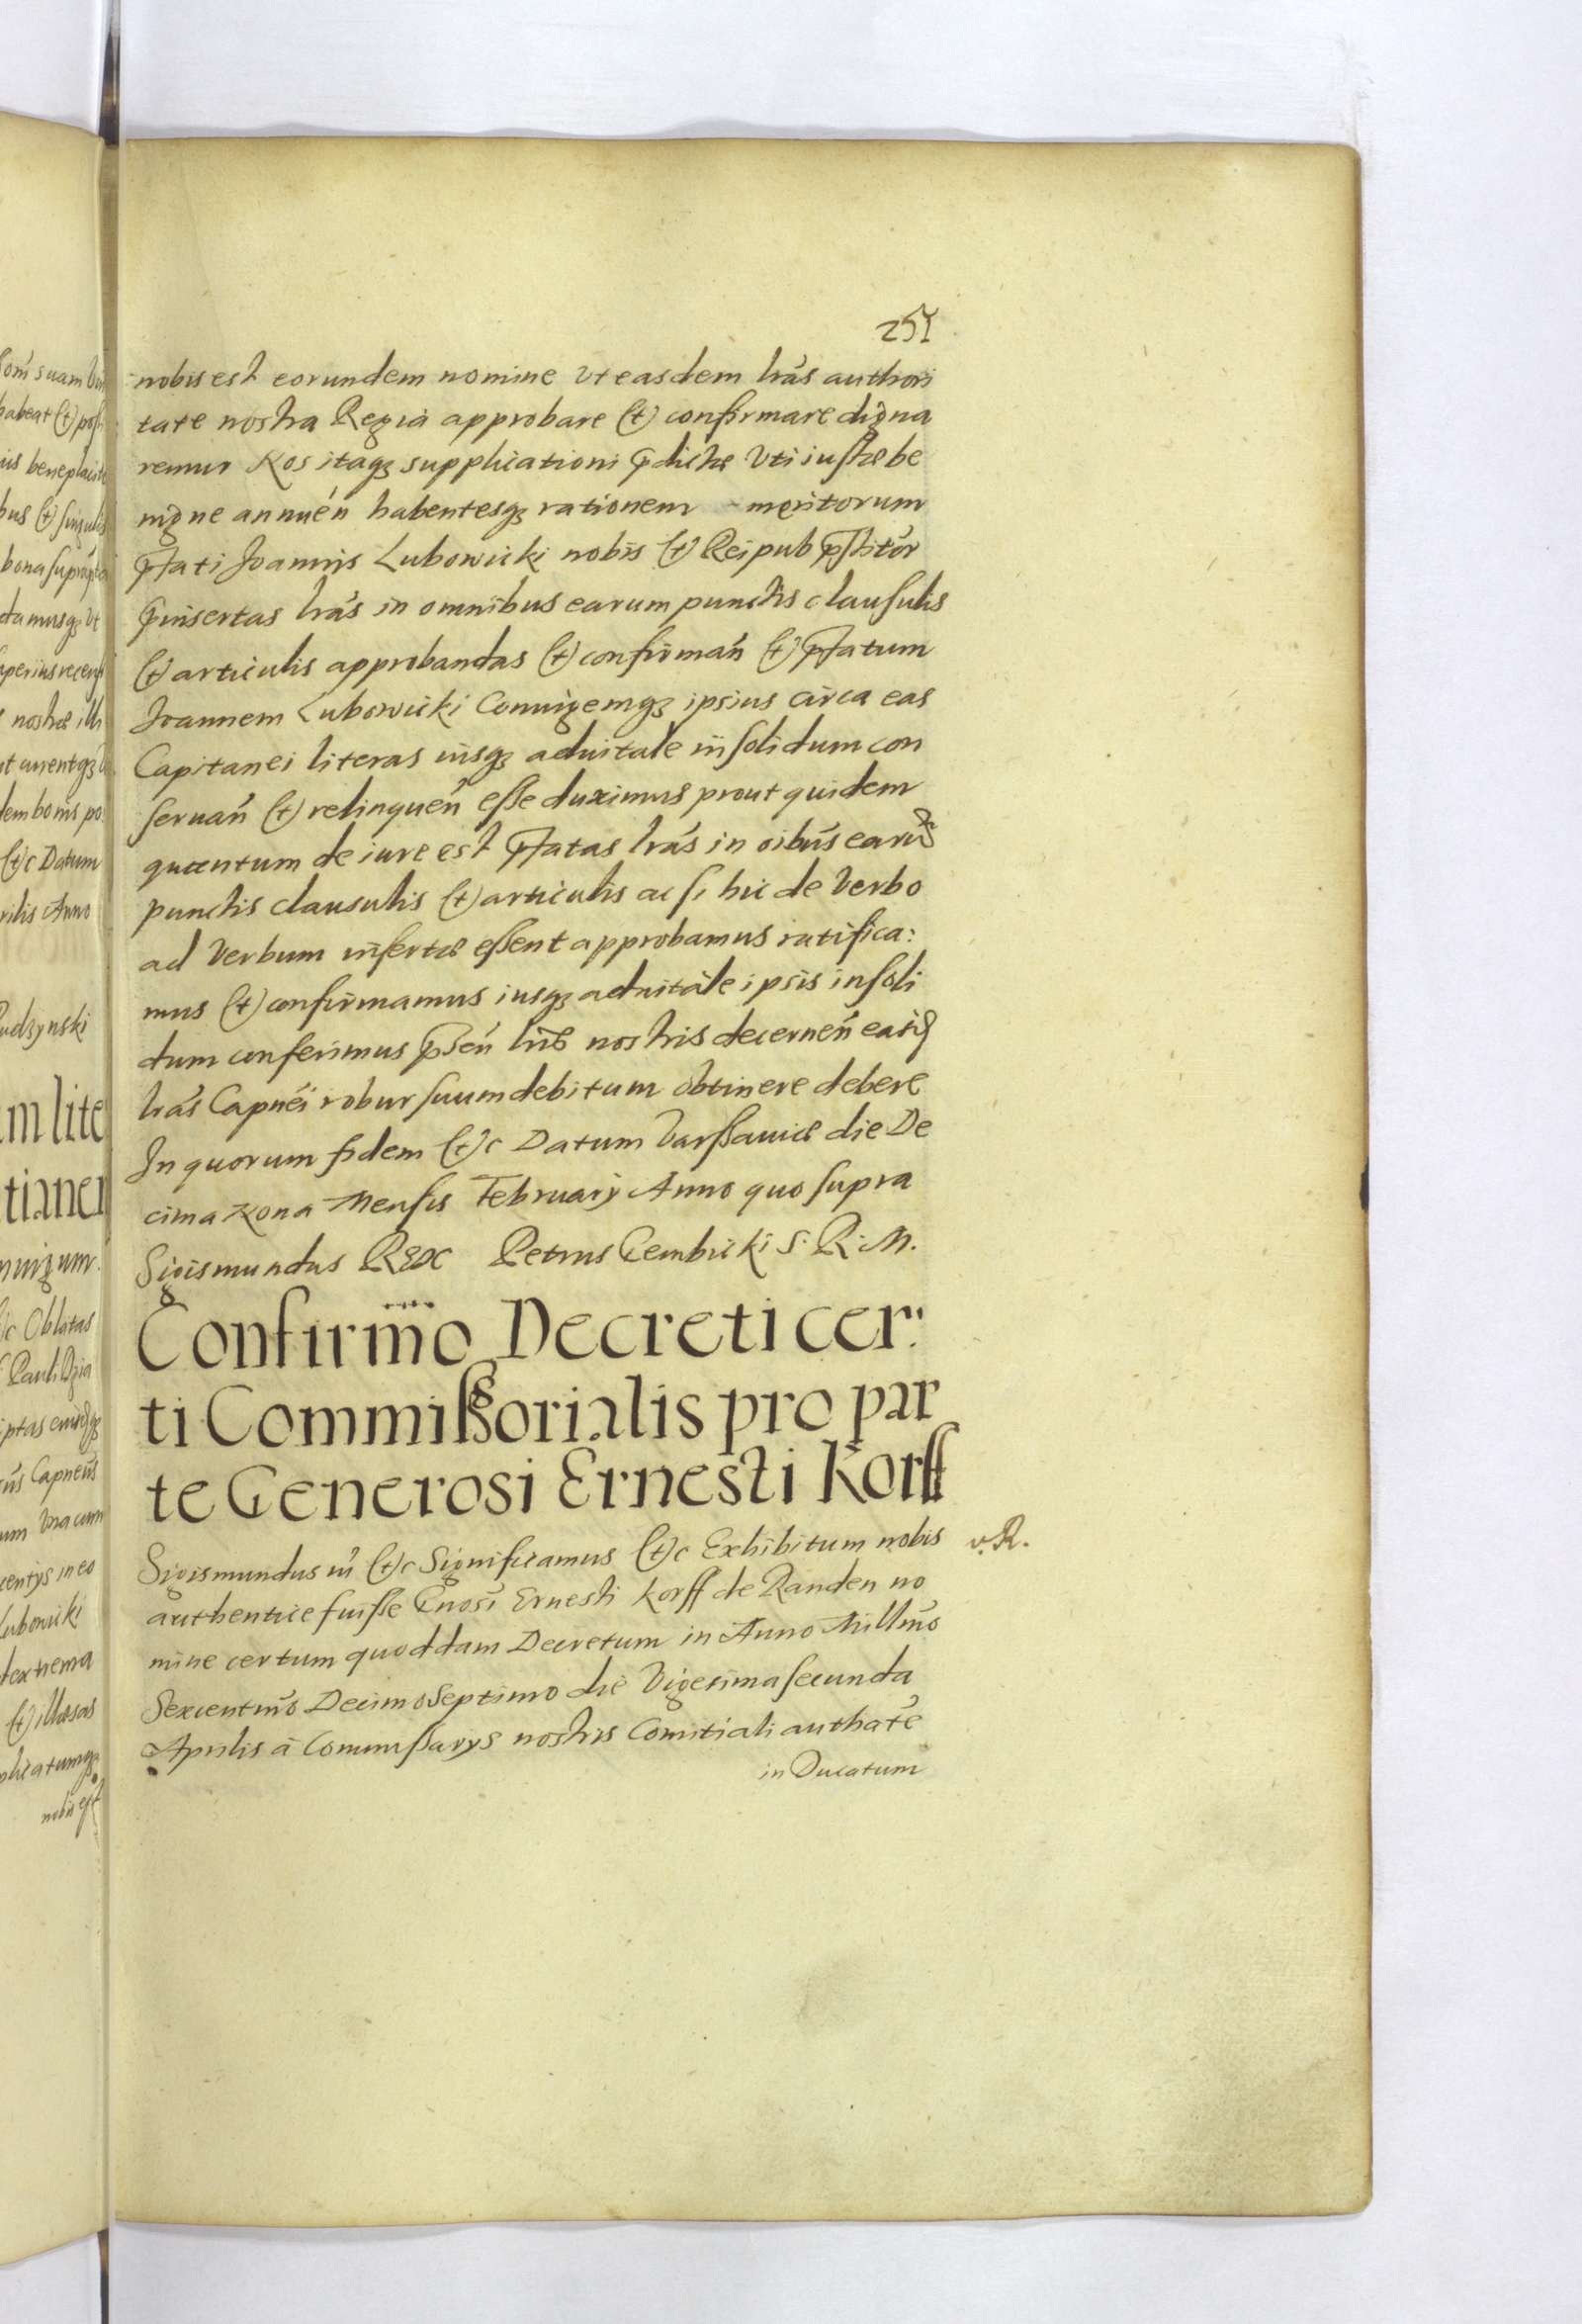 251
nobis est eorundem nomine vt easdem lrãs authori
tate nostra Regia approbare (et) confirmare digna
remur Nos itaq3 supplicationi p̃dictæ vti iustæ be
nigne annueñ habentesq3 rationem meritorum
p̃fati Joannis Lubowicki nobis (et) Reipub p̃stitor
p̃insertas lrãs in omnibus earum punctis clausulis
(et) articulis approbandas (et) confirmañ (et) p̃fatum
Joannem Lubowicki Coniugemq3 ipsius circa eas
Capitanei literas iusq3 aduitale in solidum con
seruañ (et) relinqueñ esse duximus prout quidem
quantum de iure est p̃fatas lrãs in oibus earu
punctis clausulis (et) articulis ac si hic de verbo
ad verbum insertæ essent approbamus ratifica:
mus (et) confirmamus iusq3 aduitale ipsis in soli
dum conferimus p̃señ lris nostris decerneñ easd
lrãs Capnei robur suum debitum obtinere debere
In quorum fidem (et)c Datum Varssauiæ die De
cima Nona Mensis February Anno quo supra
Sigismundus Rex Petrus Gembicki S. R. M.
Confirmo Decreti cer:
ti Commissorialis pro par
te Generosi Ernesti Korff
Sigismundus iii (et)c Significamus (et)c Exhibitum nobis
v. R.
authentice fuisse Gnosi Ernesti Korff de Randen no
mine certum quoddam Decretum in Anno Millmo
Sexcentmo Decimo Septimo die Vigesima secunda
Aprilis a Commissarys nostris Comitiali authate
in Ducatum